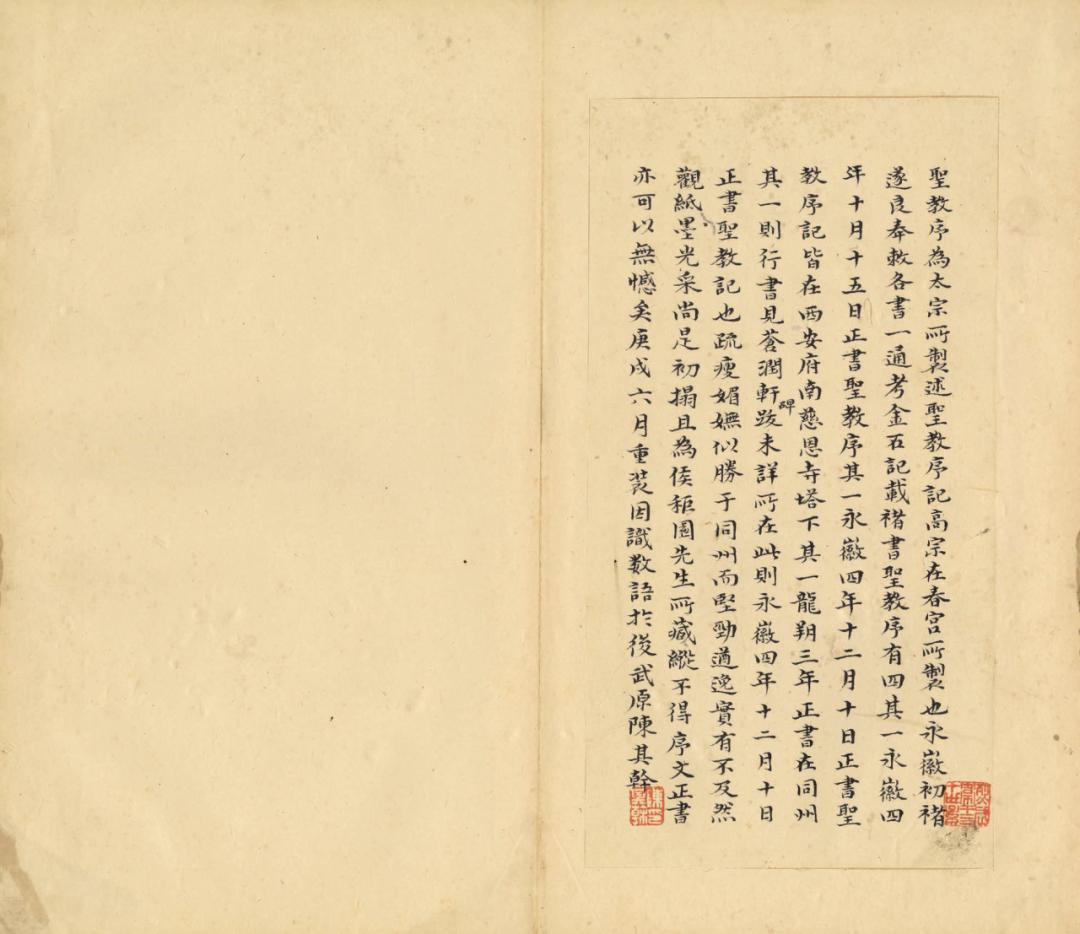 聖教序為太宗所製述聖教序記高宗在春宮所製也永徽初褚
遂良奉敕各書一通考金石記載褚書聖教序有四其一永徽四
年十月十五日正書聖教序其一永徽四年十二月十日正書聖
教序記皆在西安府南慈恩寺塔下其一龍朔三年正書在同州
其一則行書見蒼潤軒碑跋未詳所在此則永徽四年十二月十日
正書聖教記也疏瘦媚嫵似勝于同州而堅勁遒逸實有不及然
觀紙墨光采尚是初搨且為侯秬園先生所藏縱不得序文正書
亦可以無憾矣庚戌六月重裝因識數語於後武原陳其榦